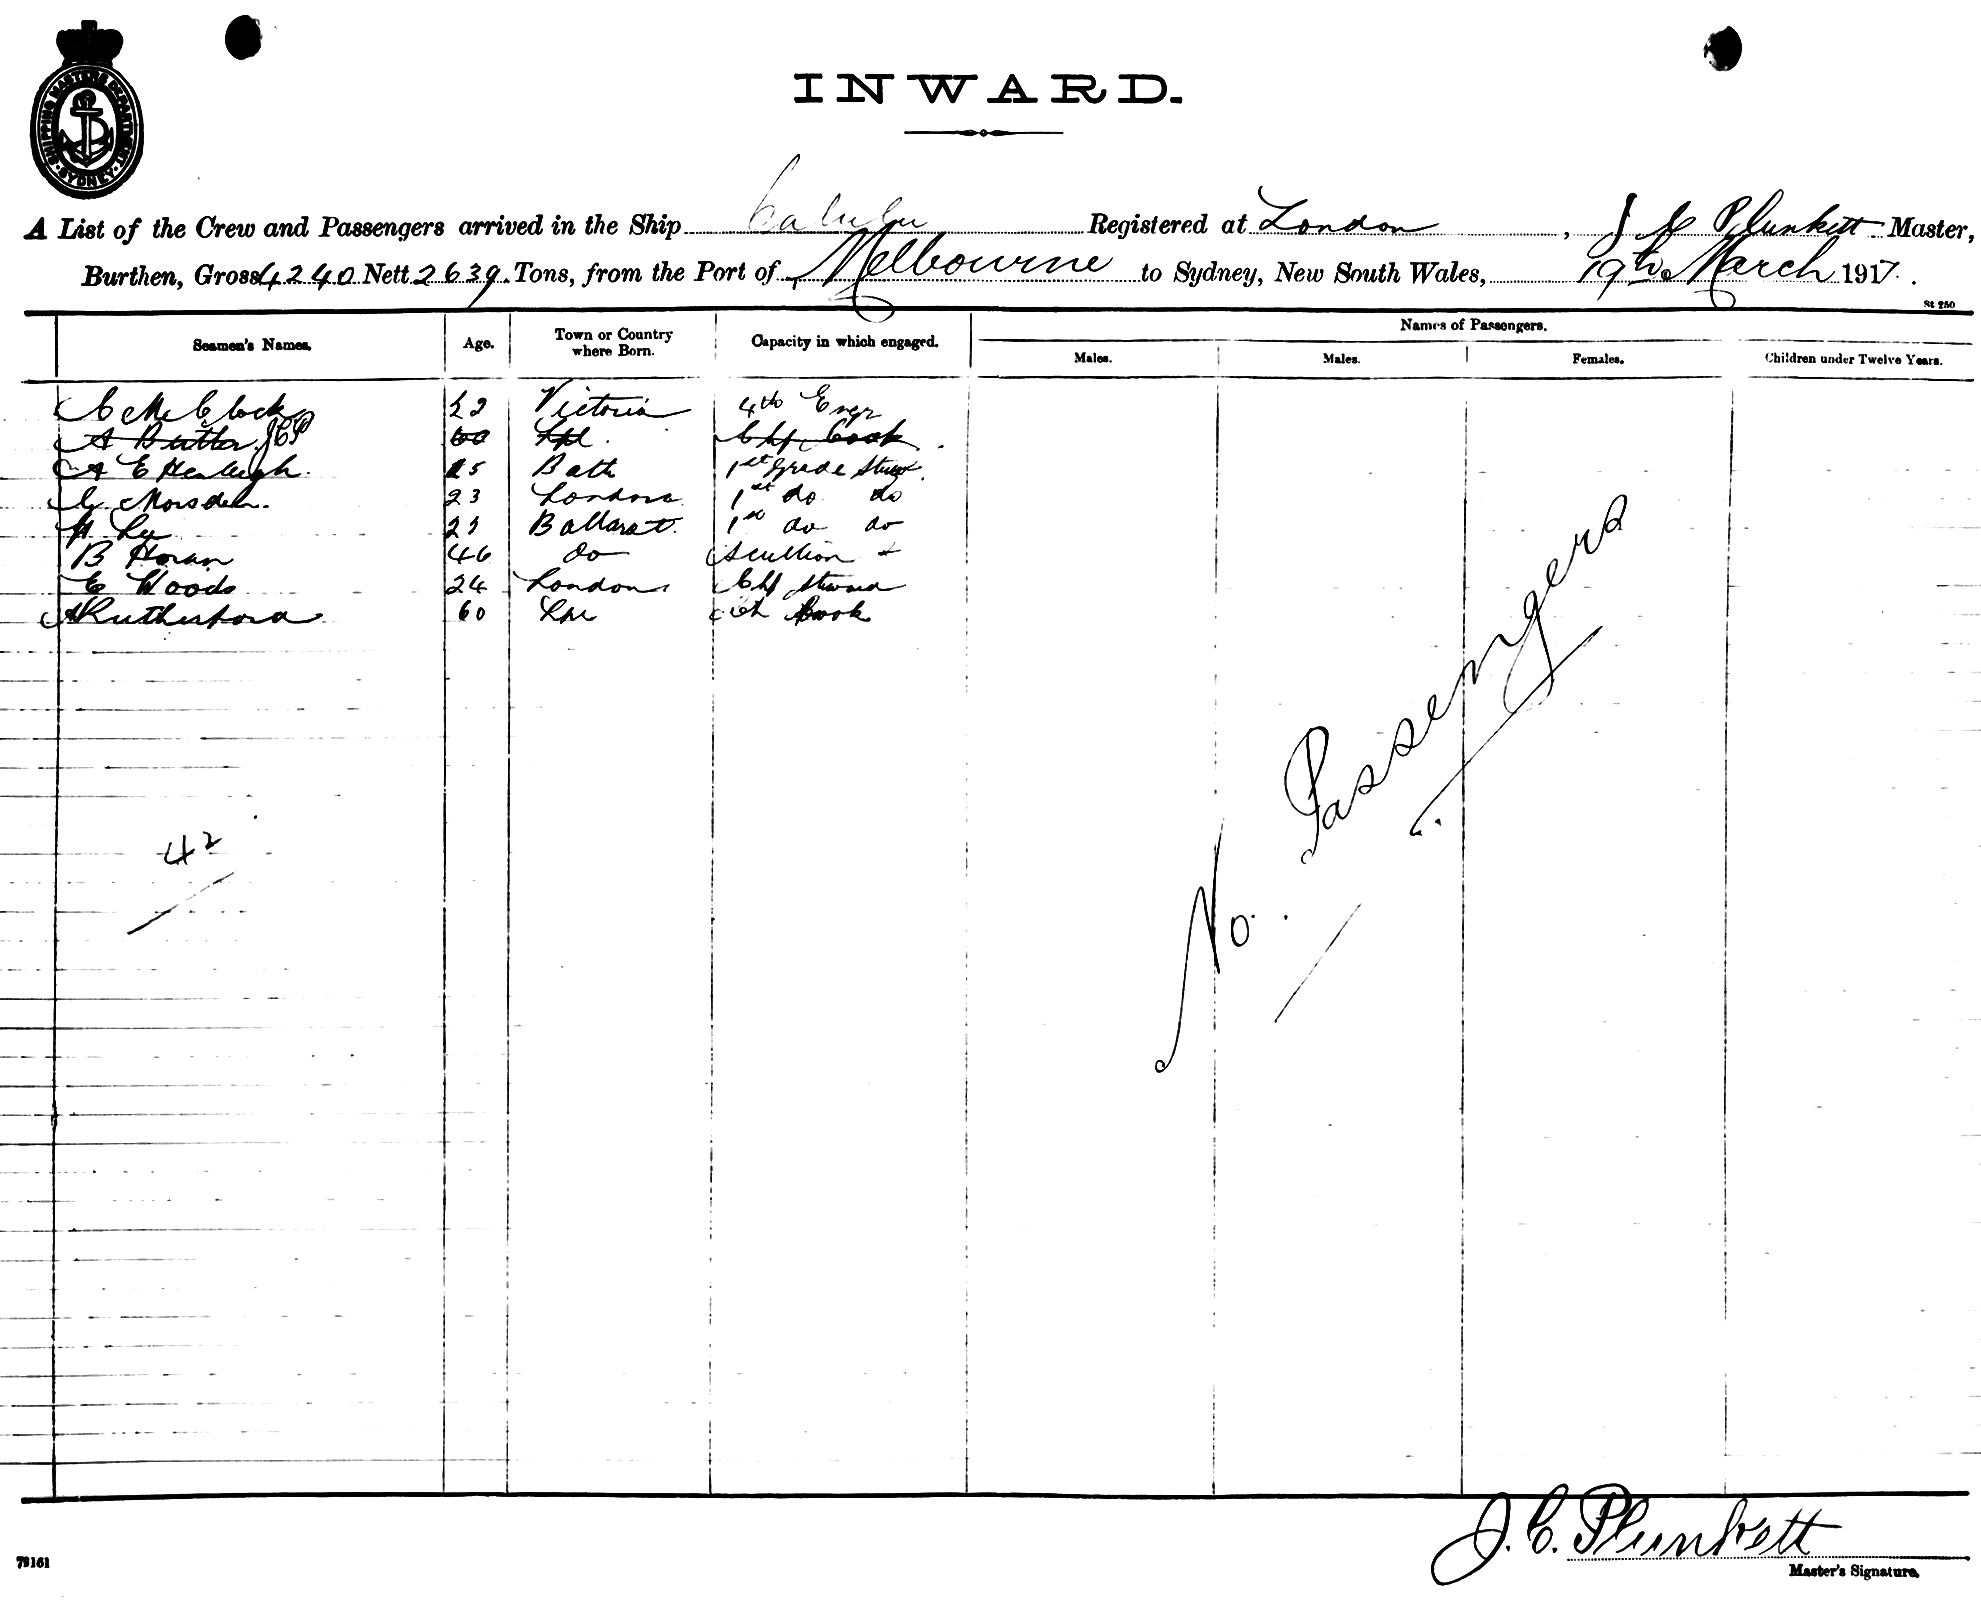 SHIPPING MASTERS DEPARTMENT
SYDNEY
INWARD.
A List of the Crew and Passengers arrived in the Ship Registered at London, J C Plunkett Master,
Burthen, Gross 4240 Nett 2639. Tons, from the Port of Melbourne to Sydney, New South Wales, 19th March 1917.
St 250
Seamen's Names. Age. Town or Country where Born. Capacity in which engaged. Names of Passengers.
Males. Males. Females. Children under Twelve Years.
C McClock Victoria 4th Engr
A Butler JCP 60 Lpl. Chf Cook
A E Henleigh 25 Bath 1st Grade Stew
C. Morsden. 23 London 1st do do
H Ballarat. 1st do do
B Horan 46 do Scullion
C Woods 24 London Chf Steward
A Rutherford 60 Ch Cook
42
No. Passengers
J. C. Plunkett
Master's Signature.
79161